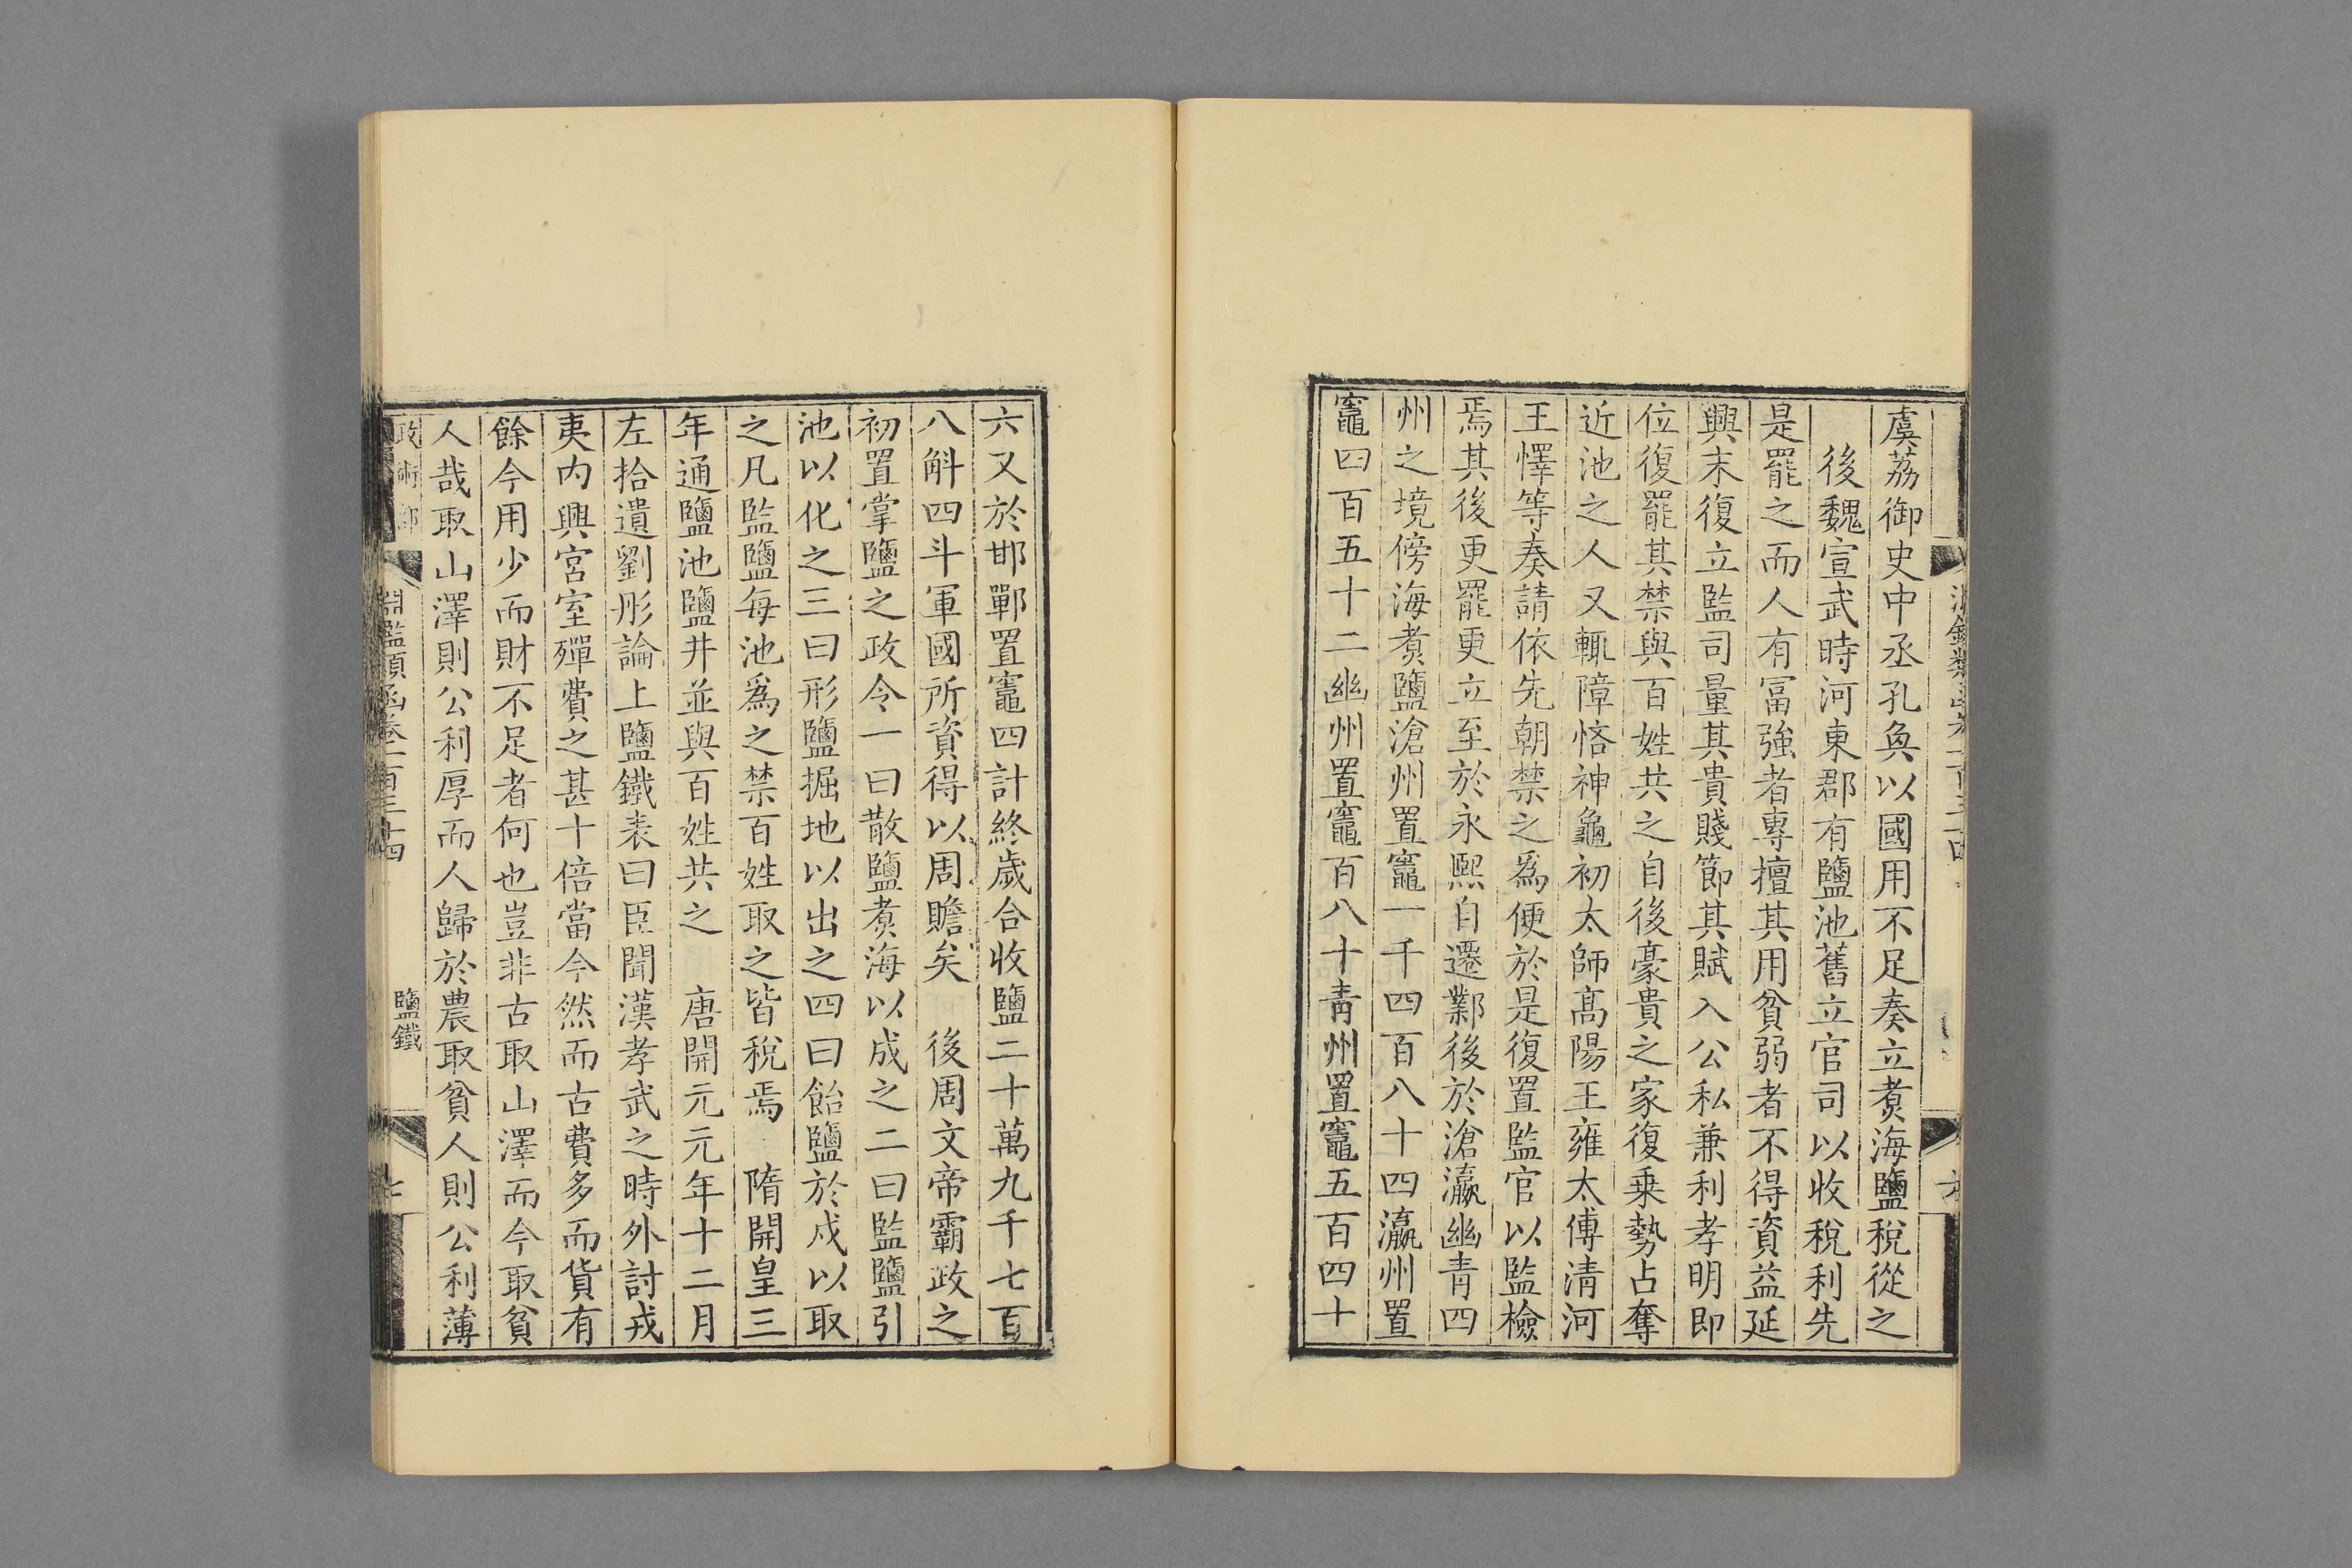 虞荔御史中丞孔奐以國用不足奏立煑海鹽稅從之
後魏宣武時河東郡有鹽池舊立官司以收稅利先
是罷之而人有富強者專擅其用貧弱者不得資益延
興末復立監司量其貴賤節其賦入公私兼利孝明即
位復罷其禁與百姓共之自後豪貴之家復乗勢占奪
近池之人又輒障悋神龜初太師髙陽王雍太傅清河
王懌等奏請依先朝禁之爲便於是復置監官以監檢
焉其後更罷更立至於永熙自遷鄴後於滄瀛幽青四
州之境傍海煑鹽滄州置竈一千四百八十四瀛州置
竈四百五十二幽州置竈百八十青州置竈五百四十
六又於邯鄲置竈四計終歲合收鹽二十萬九千七百
八斛四斗軍國所資得以周贍矣 後周文帝霸政之
初置掌鹽之政令一曰散鹽煑海以成之二曰監鹽引
池以化之三曰形鹽掘地以出之四曰飴鹽於戍以取
之凡監鹽每池爲之禁百姓取之皆稅焉 隋開皇三
年通鹽池鹽井並與百姓共之 唐開元元年十二月
左拾遺劉彤論上鹽鐵表曰臣聞漢孝武之時外討戎
夷内興宮室殫費之甚十倍當今然而古費多而貨有
餘今用少而財不足者何也豈非古取山澤而今取貧
人哉取山澤則公利厚而人歸於農取貧人則公利薄
政術部 淵鑑類函卷一百三十四 鹽鐵 七